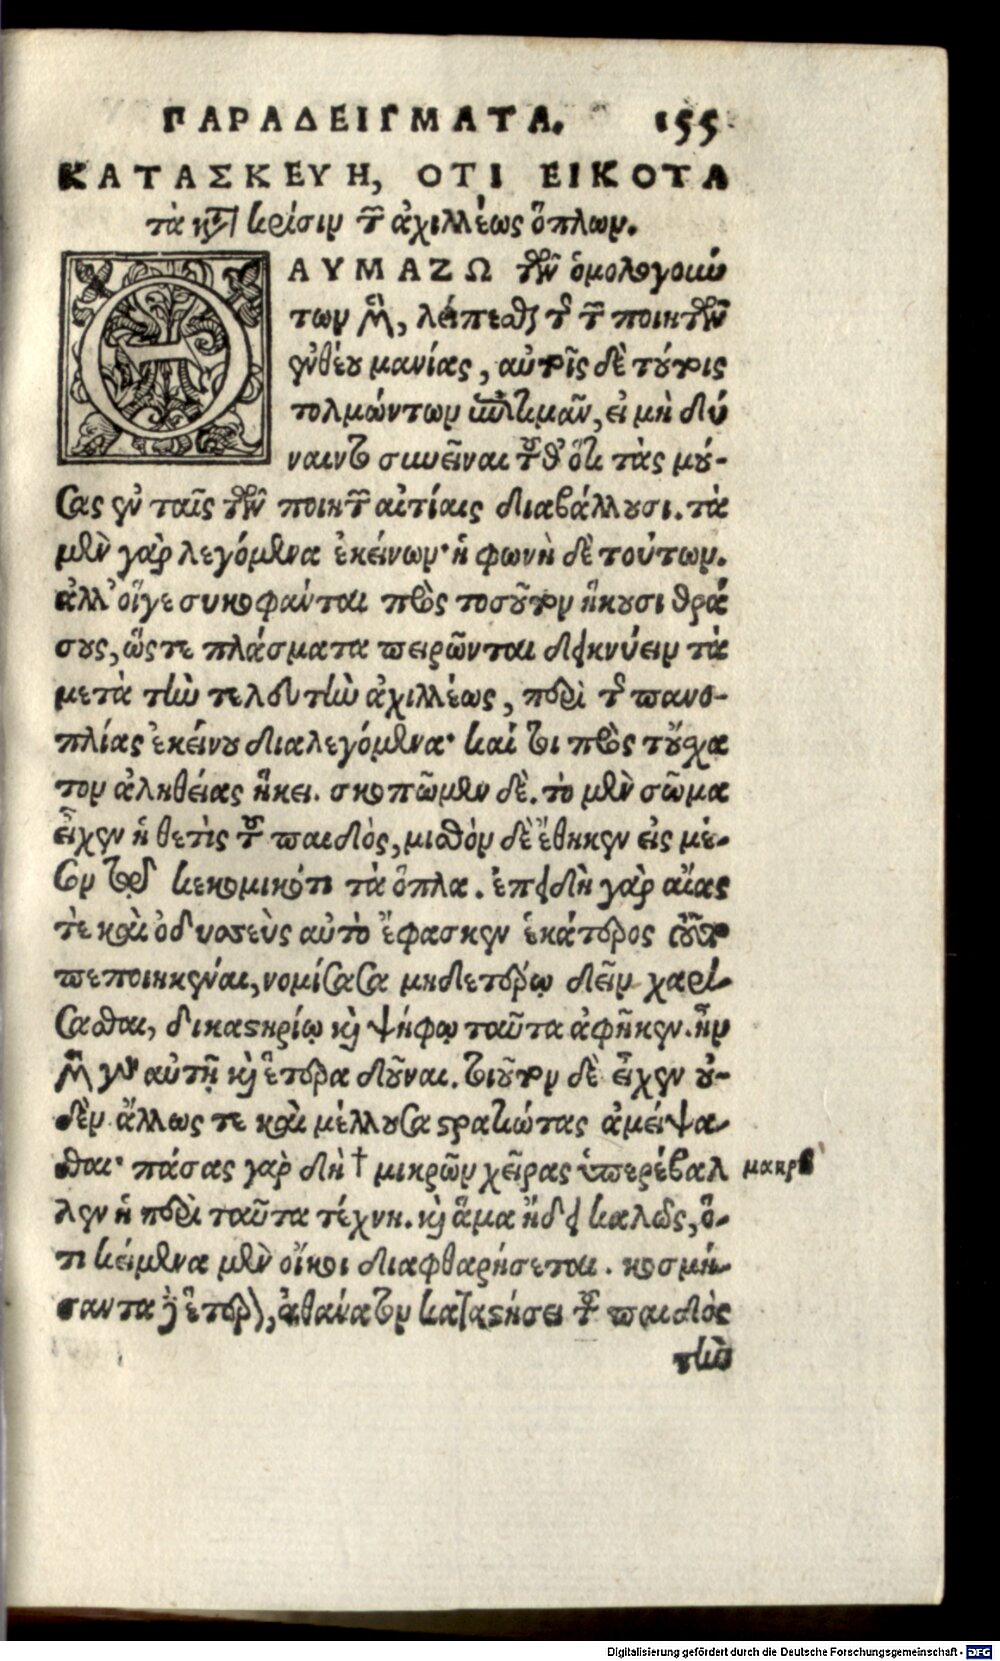 ΠΑΡΑΔΕΙΓΜΑΤΑ. 155
ΚΑΤΑΣΚΕΥΗ, ΟΤΙ ΕΙΚΟΤΑ
τὰ κατὰ κρίσιν τῶν ἀχιλλέως ὅπλων.
ΘΑΥΜΑΖΩ τῶν ὁμολογούν
των μὲν, λείπεσθαι τῆς τῶν ποιητῶν
ἐνθέου μανίας, αὐτοῖς δὲ τούτοις
τολμώντων ἐπιτιμᾶν, εἰ μὴ δύ
ναιντο συνεῖναι τοῦθ' ὅτι τὰς μού-
σας ἐν ταῖς τῶν ποιητῶν αἰτίαις διαβάλλουσι. τὰ
μὲν γὰρ λεγόμενα ἐκείνων· ἡ φωνὴ δὲ τούτων.
ἀλλ' οἵγε συκοφάνται πρὸς τοσοῦτον ἥκουσι θρά
σους, ὥστε πλάσματα πειρῶνται δεικνύειν τὰ
μετὰ τὴν τελευτὴν ἀχιλλέως, περὶ τῆς πανο-
πλίας ἐκείνου διαλεγόμενα· καί τοι πρὸς τοὔσχα
τον ἀληθείας ἥκει. σκοπῶμεν δὲ. τὸ μὲν σῶμα
εἶχεν ἡ θετὶς τοῦ παιδὸς, μισθὸν δὲ ἔθηκεν εἰς μέ-
σον τῷ κεκομικότι τὰ ὅπλα. ἐπειδὴ γὰρ αἴας
τε καὶ ὀδυσσεὺς αὐτὸ ἔφασκεν ἑκάτερος τοῦτο
πεποιηκέναι, νομίσασα μηδετέρῳ δεῖν χαρί-
σασθαι, δικαστηρίῳ καὶ ψήφῳ ταῦτα ἀφῆκεν. ἦν
μὲν γὰρ αὐτῇ καὶ ἕτερα δοῦναι. τοιοῦτον δὲ εἶχεν οὐ-
δὲν ἄλλως τε καὶ μέλλουσα στρατιώτας ἀμείψα-
σθαι· πάσας γὰρ δὴ † μικρῶν χεῖρας ὑπερέβαλ μακρῷ
λεν ἡ περὶ ταῦτα τέχνη. καὶ ἅμα ᾔδει καλῶς, ὅ-
τι κείμενα μὲν οἴκοι διαφθαρήσεται. κοσμή-
σαντα δ' ἕτερον, ἀθάνατον καταστήσει τοῦ παιδὸς
τὴν
Digitalisierung gefördert durch die Deutsche Forschungsgemeinschaft - DFG